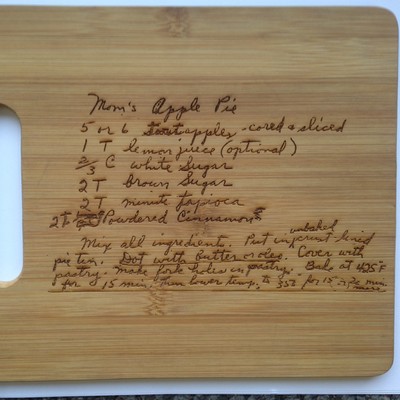 Mom's Apple Pie
5 or 6 apples - cored & sliced
1 T lemon juice (optional)
2/3 C white Sugar
2 T brown Sugar
2 T minute tapioca
2 T Powdered Cinnamon
unbaked
Mix all ingredients. Put in crust lined
pie tin. Dot with butter or oleo. Cover with
pastry. Make fork holes in pastry. Bake at 425°F
for 15 min. Then lower temp. to 350° for 15 min.